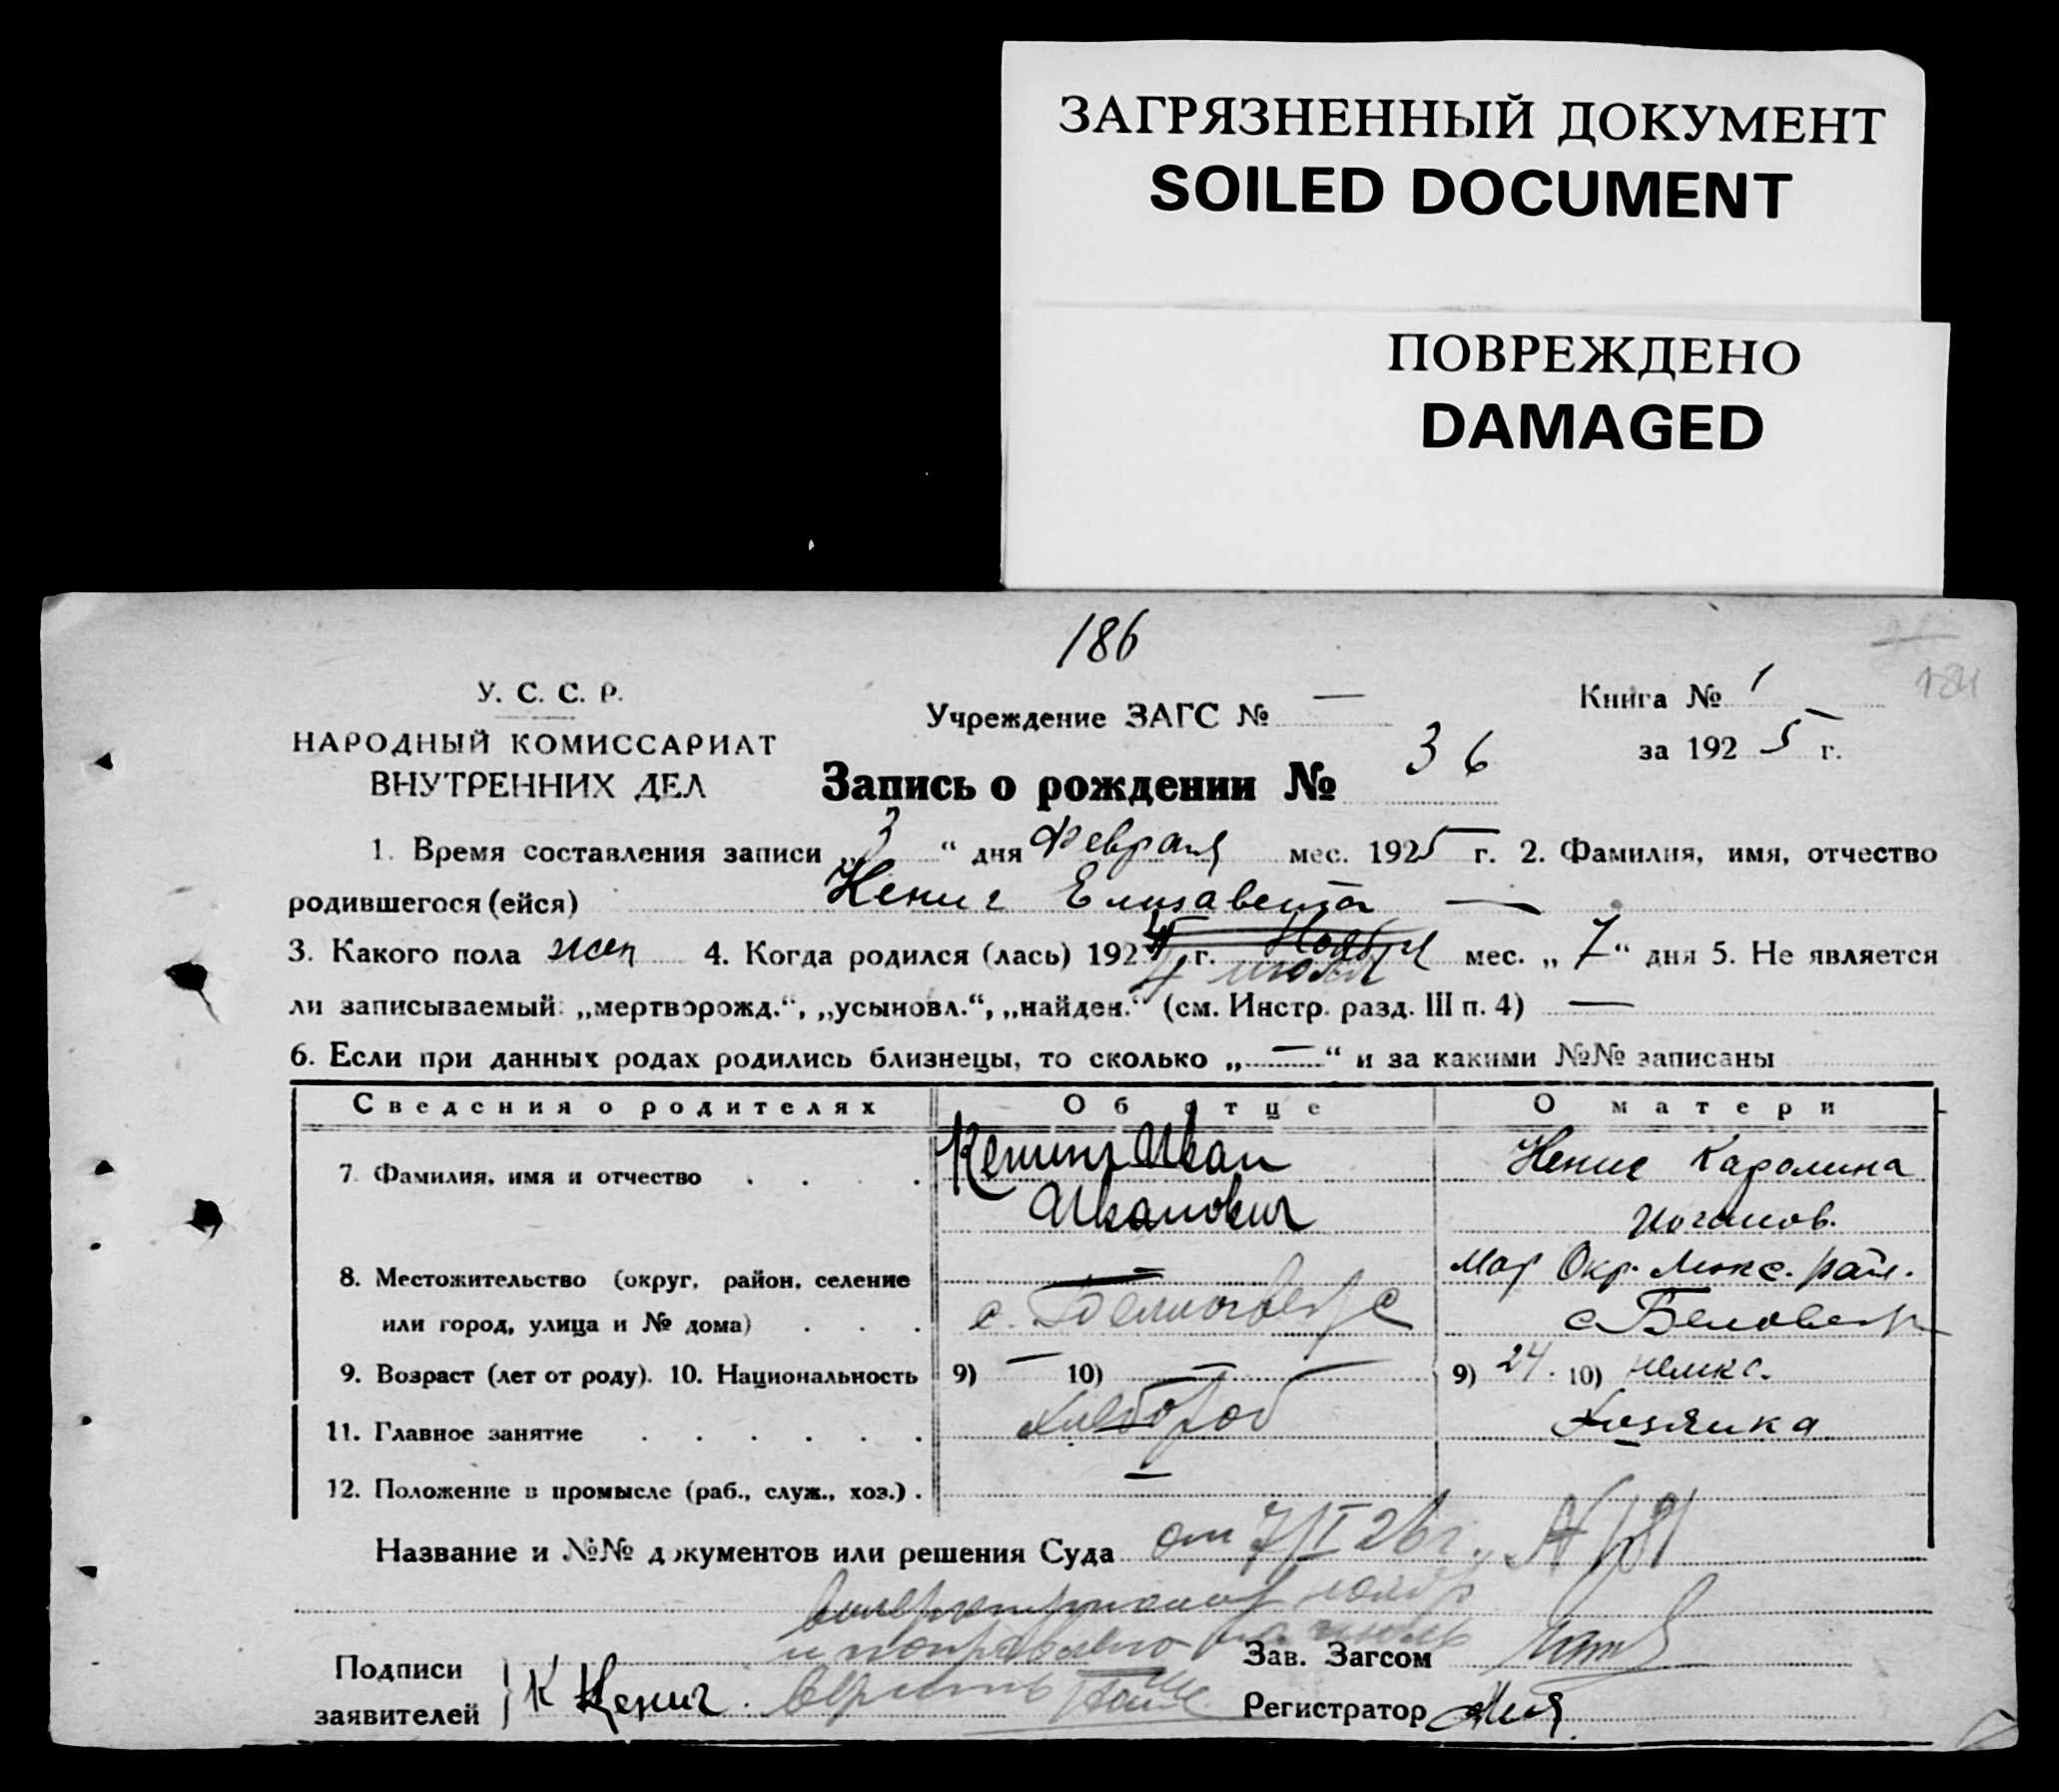 ЗАГРЯЗНЕННЫЙ ДОКУМЕНТ
SOILED DOCUMENT
ПОВРЕЖДЕНО
DAMAGED
186
181
У. С. С. Р.
НАРОДНЫЙ КОМИССАРИАТ
ВНУТРЕННИХ ДЕЛ
Учреждение ЗАГС № —
Книга № 1
за 1925 г.
Запись о рождении № 36
1. Время составления записи „3“ дня Февраля мес. 1925 г. 2. Фамилия, имя, отчество
родившегося (ейся) Кениг Елизавета —
3. Какого пола жен 4. Когда родился (лась) 1924 г. Ноября мес. „7“ дня 5. Не является
4 июля
ли записываемый: „мертворожд.“, „усыновл.“, „найден.“ (см. Инстр. разд. III п. 4) —
6. Если при данных родах родились близнецы, то сколько „—“ и за какими №№ записаны
Сведения о родителях Об отце О матери
7. Фамилия, имя и отчество Кениг Иван Кениг Каролина
Иванович Иоганов.
8. Местожительство (округ, район, селение — Мар Окр. Люкс. рай.
или город, улица и № дома) с. с Беловеж
9. Возраст (лет от роду). 10. Национальность 9) — 10) — 9) 24. 10) немка.
11. Главное занятие Хлебороб Хозяйка
12. Положение в промысле (раб., служ., хоз.) —
Название и №№ документов или решения Суда от 7/I 26 г. № 181
ноябр
и исправлено на июль
Подписи
заявителей К Кениг. Верить
Зав. Загсом
Регистратор